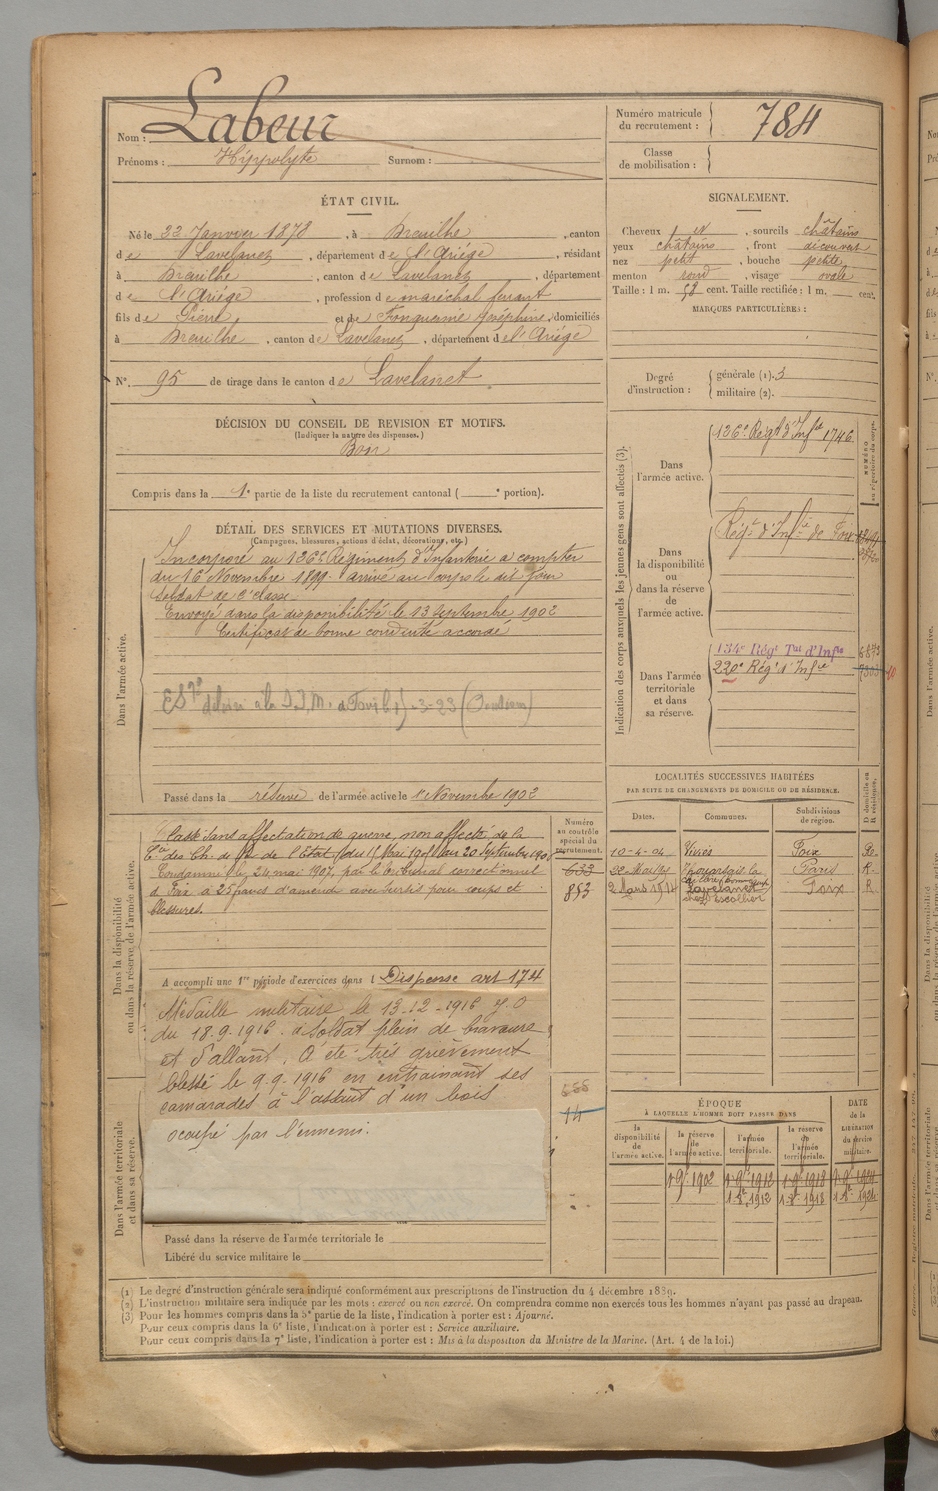 Nom : Labeur
Prénoms : Hippolyte Surnom :
Numéro matricule du recrutement : 784
Classe de mobilisation :
ÉTAT CIVIL.
Né le 22 Janvier 1878, à Dreuilhe, canton
de Lavelanet, département de l'Ariége, résidant
à Dreuilhe, canton de Lavelanet, département
de l'Ariége, profession de maréchal ferrant
fils de Pierre, et de Joséphine, domiciliés
à Dreuilhe, canton de Lavelanet, département de l'Ariége
N° 95 de tirage dans le canton de Lavelanet.
SIGNALEMENT.
Cheveux , sourcils châtains
yeux châtains, front découvert
nez petit, bouche petite,
menton rond, visage ovale
Taille : 1 m. 58 cent. Taille rectifiée : 1 m. cent.
MARQUES PARTICULIÈRES :
Degré d'instruction : générale (1). 3
militaire (2).
DÉCISION DU CONSEIL DE REVISION ET MOTIFS.
(Indiquer la nature des dispenses.)
Bon
Compris dans la 1e partie de la liste du recrutement cantonal ( e portion).
DÉTAIL DES SERVICES ET MUTATIONS DIVERSES.
(Campagnes, blessures, actions d'éclat, décorations, etc.)
Dans l'armée active.
Incorporé au 126e Régiment d'Infanterie a compter
du 16 Novembre 1899. arrivé au corps le dit jour
Soldat de 2e classe.
Envoyé dans la disponibilité le 13 septembre 1902
Certificat de bonne conduite accordé
Passé dans la réserve de l'armée active le 1er Novembre 1902
Indication des corps auxquels les jeunes gens sont affectés (3).
NUMÉRO au répertoire du corps.
Dans l'armée active.
126e Régt d'Infie 1746
Dans la disponibilité ou dans la réserve de l'armée active.
Régt d'Infie de Foix
Dans l'armée territoriale et dans sa réserve.
134e Régt Tal d'Infie
220e Régt d'Infie
LOCALITÉS SUCCESSIVES HABITÉES
PAR SUITE DE CHANGEMENTS DE DOMICILE OU DE RÉSIDENCE.
Dates. Communes. Subdivisions de région. D domicile ou R résidence.
10-4-04 Foix
22 Mai Paris R.
2 Mars 1914 Lavelanet chez Escollier Foix R
Dans la disponibilité ou dans la réserve de l'armée active.
Numéro au contrôle spécial du recrutement.
633
853
Classé sans affectation de guerre, non affecté, de la
Cie des Ch. de fer de l'État, du Mai au 20 septembre
Condamné le 24 mai 1907, par le tribunal correctionnel
de Foix à 25 francs d'amende avec sursis pour coups et
blessures.
A accompli une 1re période d'exercices dans l Dispense art 174
Médaille militaire le 13-12-1916 J.O
du 18.9.1916. à Soldat plein de bravoure
et d'allant, a été très grièvement
blessé le 9.9.1916 en entrainant ses
camarades à l'assaut d'un bois
occupé par l'ennemi.
14
Dans l'armée territoriale et dans sa réserve.
Passé dans la réserve de l'armée territoriale le
Libéré du service militaire le
ÉPOQUE
À LAQUELLE L'HOMME DOIT PASSER DANS
la disponibilité de l'armée active. la réserve de l'armée active. l'armée territoriale. la réserve de l'armée territoriale. DATE de la LIBÉRATION du service militaire.
1 9e 1902 1 9e 1912 1 9e 1918 1 9e 1924
1 8e 1912 1 8e 1918 1 8e 1924
(1) Le degré d'instruction générale sera indiqué conformément aux prescriptions de l'instruction du 4 décembre 1889.
(2) L'instruction militaire sera indiquée par les mots : exercé ou non exercé. On comprendra comme non exercés tous les hommes n'ayant pas passé au drapeau.
(3) Pour les hommes compris dans la 5e partie de la liste, l'indication à porter est : Ajourné.
Pour ceux compris dans la 6e liste, l'indication à porter est : Service auxiliaire.
Pour ceux compris dans la 7e liste, l'indication à porter est : Mis à la disposition du Ministre de la Marine. (Art. 4 de la loi.)